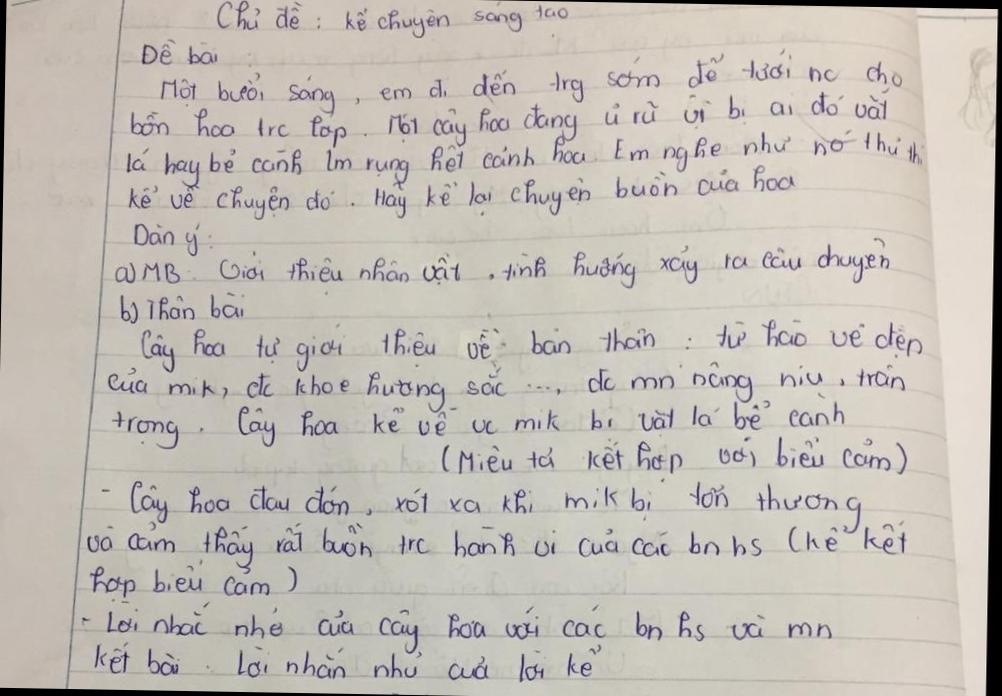 Chủ đề : kể chuyện sáng tạo
Đề bài
Một buổi sáng, em đi đến trg sớm để tưới nc cho
bồn hoa trc lớp. Một cây hoa đang ủ rũ vì bị ai đó vặt
lá hay bẻ cành lm rụng hết cánh hoa. Em nghe như nó thủ thỉ
kể về chuyện đó. Hãy kể lại chuyện buồn của hoa
Dàn ý:
a) MB. Giới thiệu nhân vật, tình huống xảy ra câu chuyện
b) Thân bài
Cây hoa tự giới thiệu về bản thân : tự hào vẻ đẹp
của mik, đc khoe hương sắc ..., đc mn nâng niu, trân
trọng. Cây hoa kể về vc mik bị vặt lá bẻ cành
(Miêu tả kết hợp với biểu cảm)
- Cây hoa đau đớn, xót xa khi mik bị tổn thương
và cảm thấy rất buồn trc hành vi của các bn hs (kể kết
hợp biểu cảm)
- Lời nhắc nhở của cây hoa với các bn hs và mn
kết bài. Lời nhắn nhủ cuả lời kể